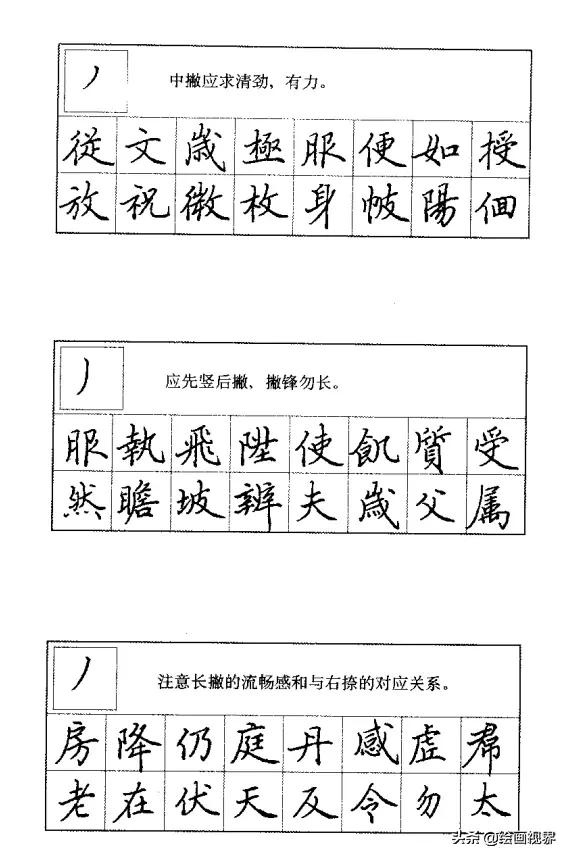 中撇应求清劲，有力。
從文歲極服便如授
放祝微枚身帔陽佪
应先竖后撇、撇锋勿长。
服執飛陞使飢質受
然瞻坡辦夫歲父属
注意长撇的流畅感和与右捺的对应关系。
房降仍庭丹感虚
老在伏天及令勿太
头条@绘画视界